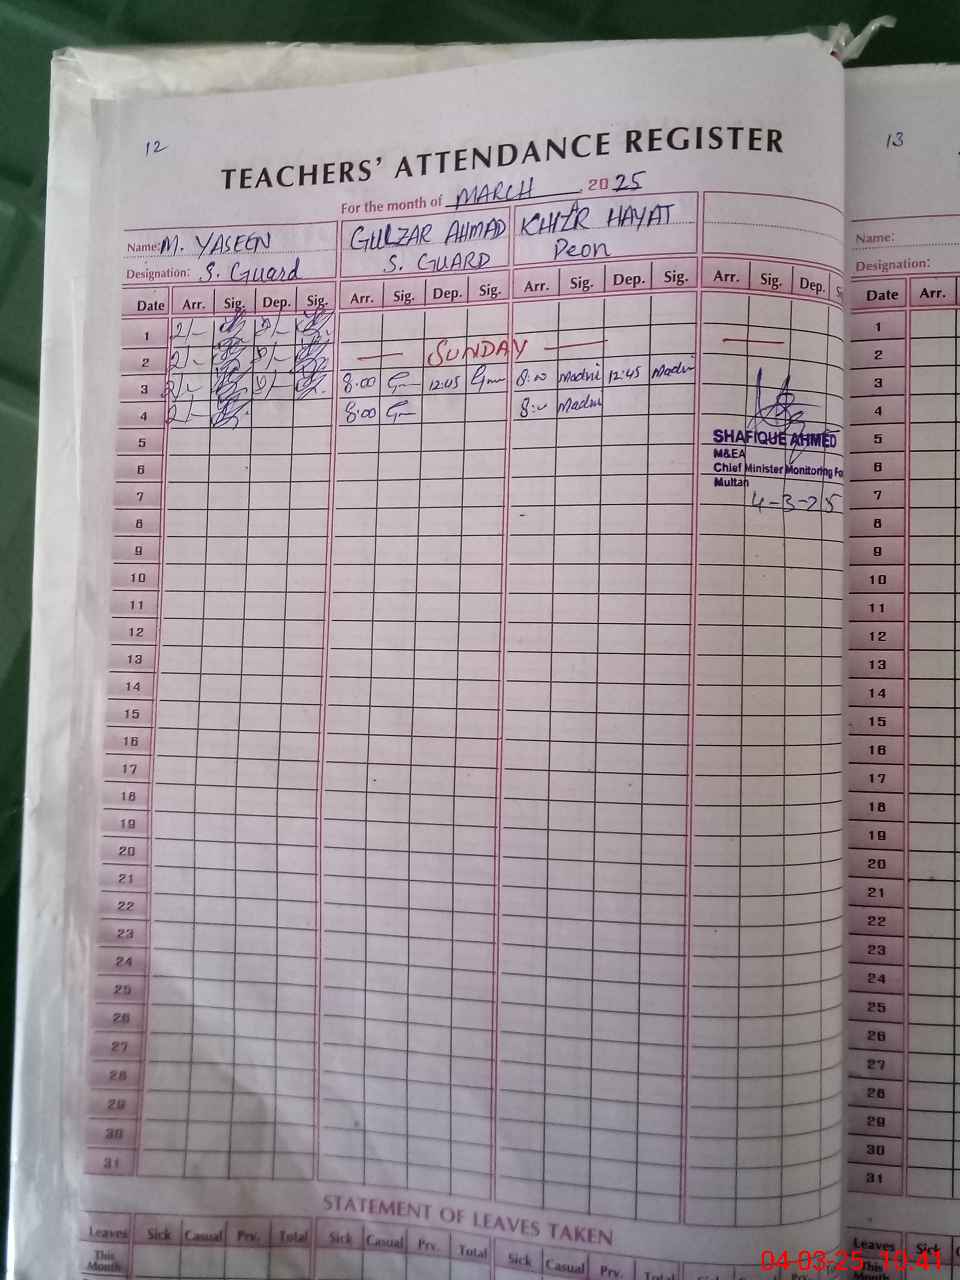 12
13
TEACHERS' ATTENDANCE REGISTER
For the month of MARCH 2025
Name: M. YASEEN GULZAR AHMAD KHIZR HAYAT
Designation: S. Guard S. GUARD Peon
Name:
Designation:
Date Arr. Sig. Dep. Sig. Arr. Sig. Dep. Sig. Arr. Sig. Dep. Sig. Arr. Sig. Dep. Date Arr.
1 1
2 SUNDAY 2
3 8:00 12:45 12:45 3
4 8:00 4
5 SHAFIQUE AHMED 5
M&EA
6 Chief Minister Monitoring Fo 6
Multan
7 4-3-25 7
8 8
9 9
10 10
11 11
12 12
13 13
14 14
15 15
16 16
17 17
18 18
19 19
20 20
21 21
22 22
23 23
24 24
25 25
26 26
27 27
28 28
29 29
30 30
31 31
STATEMENT OF LEAVES TAKEN
Leaves Sick Casual Prv. Total Sick Casual Prv. Total Sick Casual Prv. Total Sick Casual Leaves Sick
This Month This
04-03-25 10:41